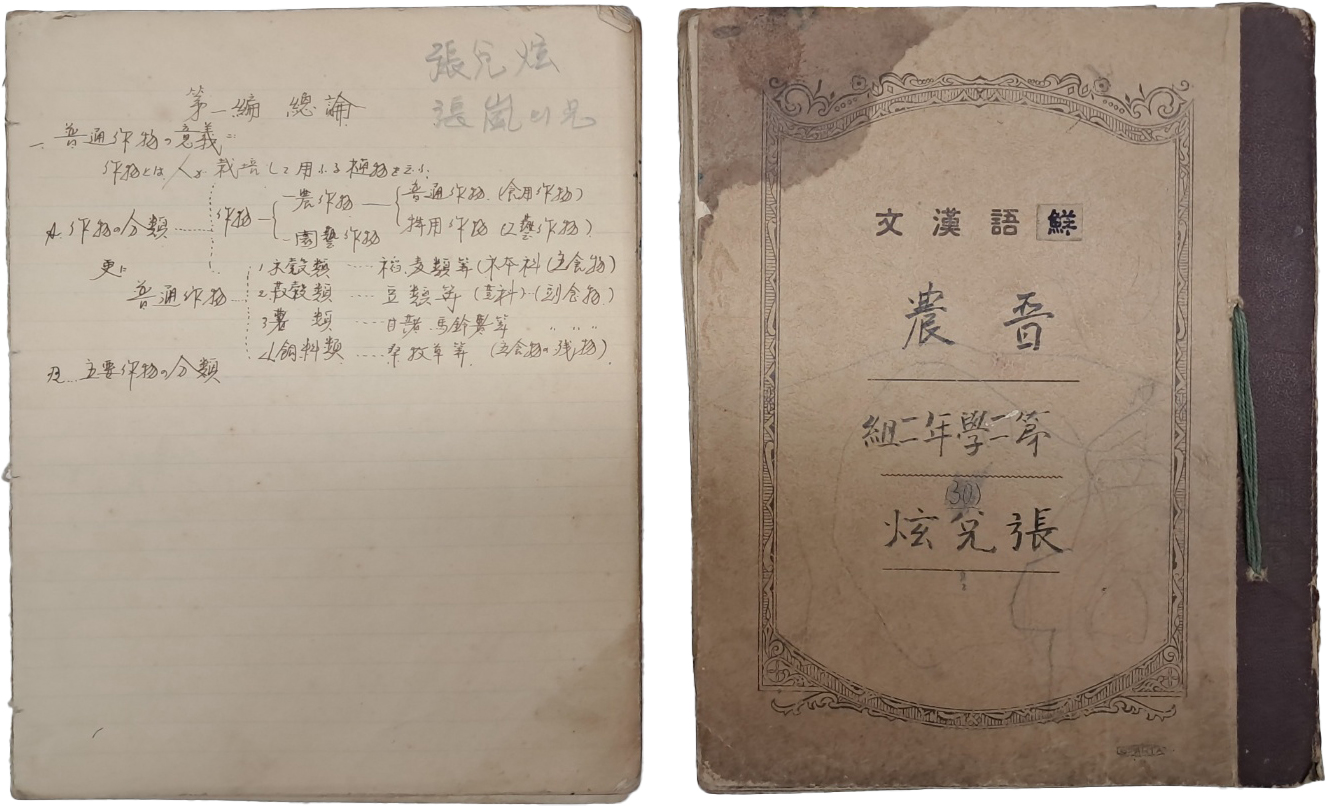 張兌炫
張嵐の兄
第一編 總論
一、普通作物の意義
作物とは人が栽培して用ふる植物を云ふ
作物の分類 作物 農作物 普通作物(食用作物)
特用作物(工藝作物)
園藝作物
更に
普通作物 1. 禾穀類 稻、麦類等(禾本科)(主食物)
2. 菽穀類 豆類等(荳科)(副食物)
3. 薯類 甘藷、馬鈴薯等 〃 〃 〃
4. 飼料類 牧草等(主食物の残物)
主要作物の分類
鮮語漢文
晋農
第二學年二組
(30)
張兌炫